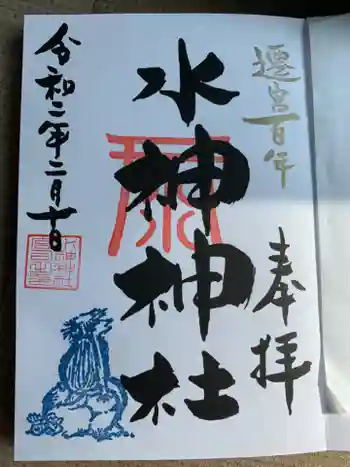 遷宮百年
奉拝
水神神社
令和二年二月十日